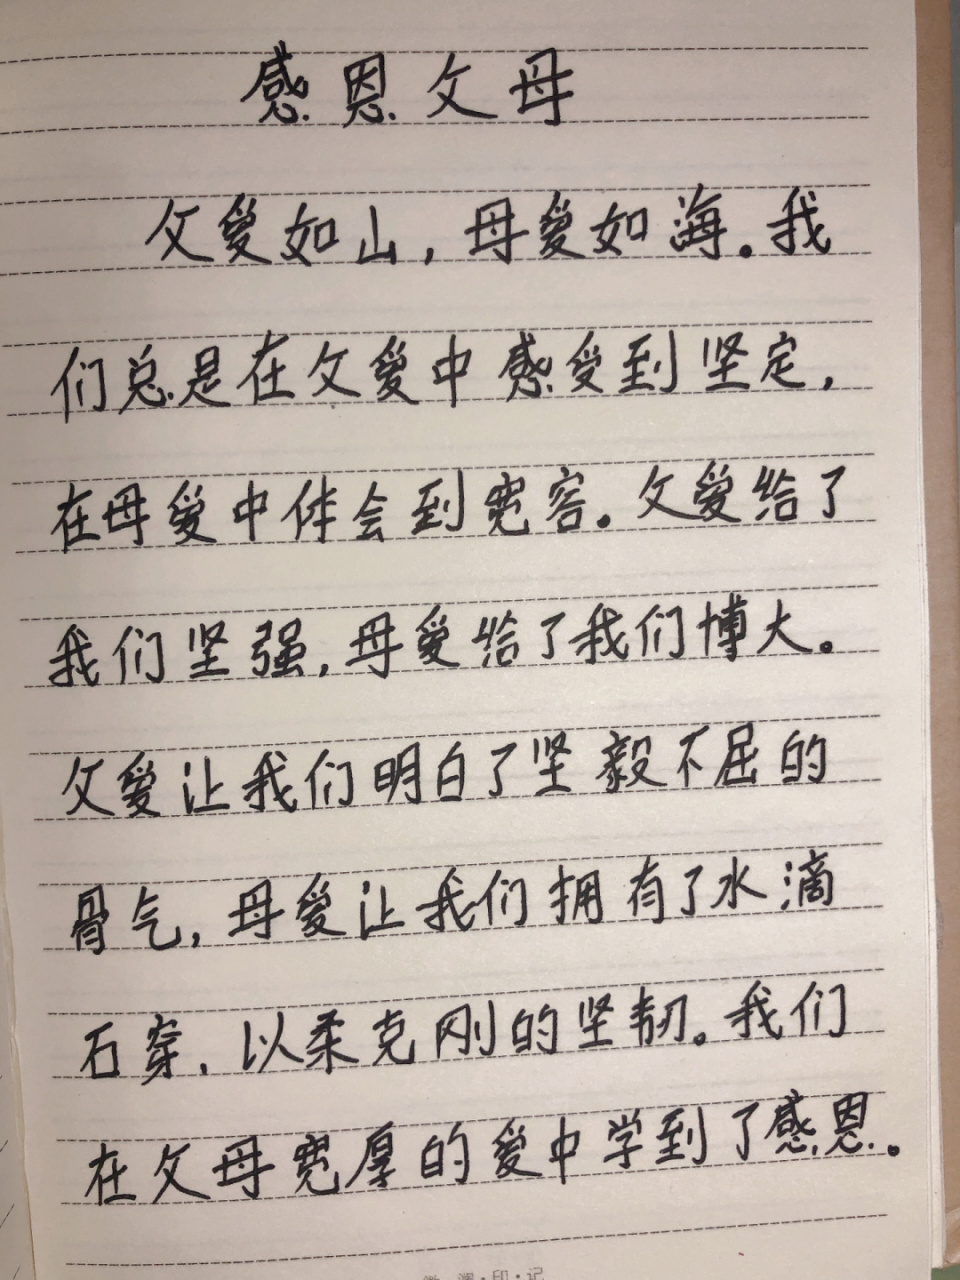 感恩父母
父爱如山,母爱如海。我
们总是在父爱中感受到坚定,
在母爱中体会到宽容。父爱给了
我们坚强,母爱给了我们博大。
父爱让我们明白了坚毅不屈的
骨气,母爱让我们拥有了水滴
石穿,以柔克刚的坚韧。我们
在父母宽厚的爱中学到了感恩。